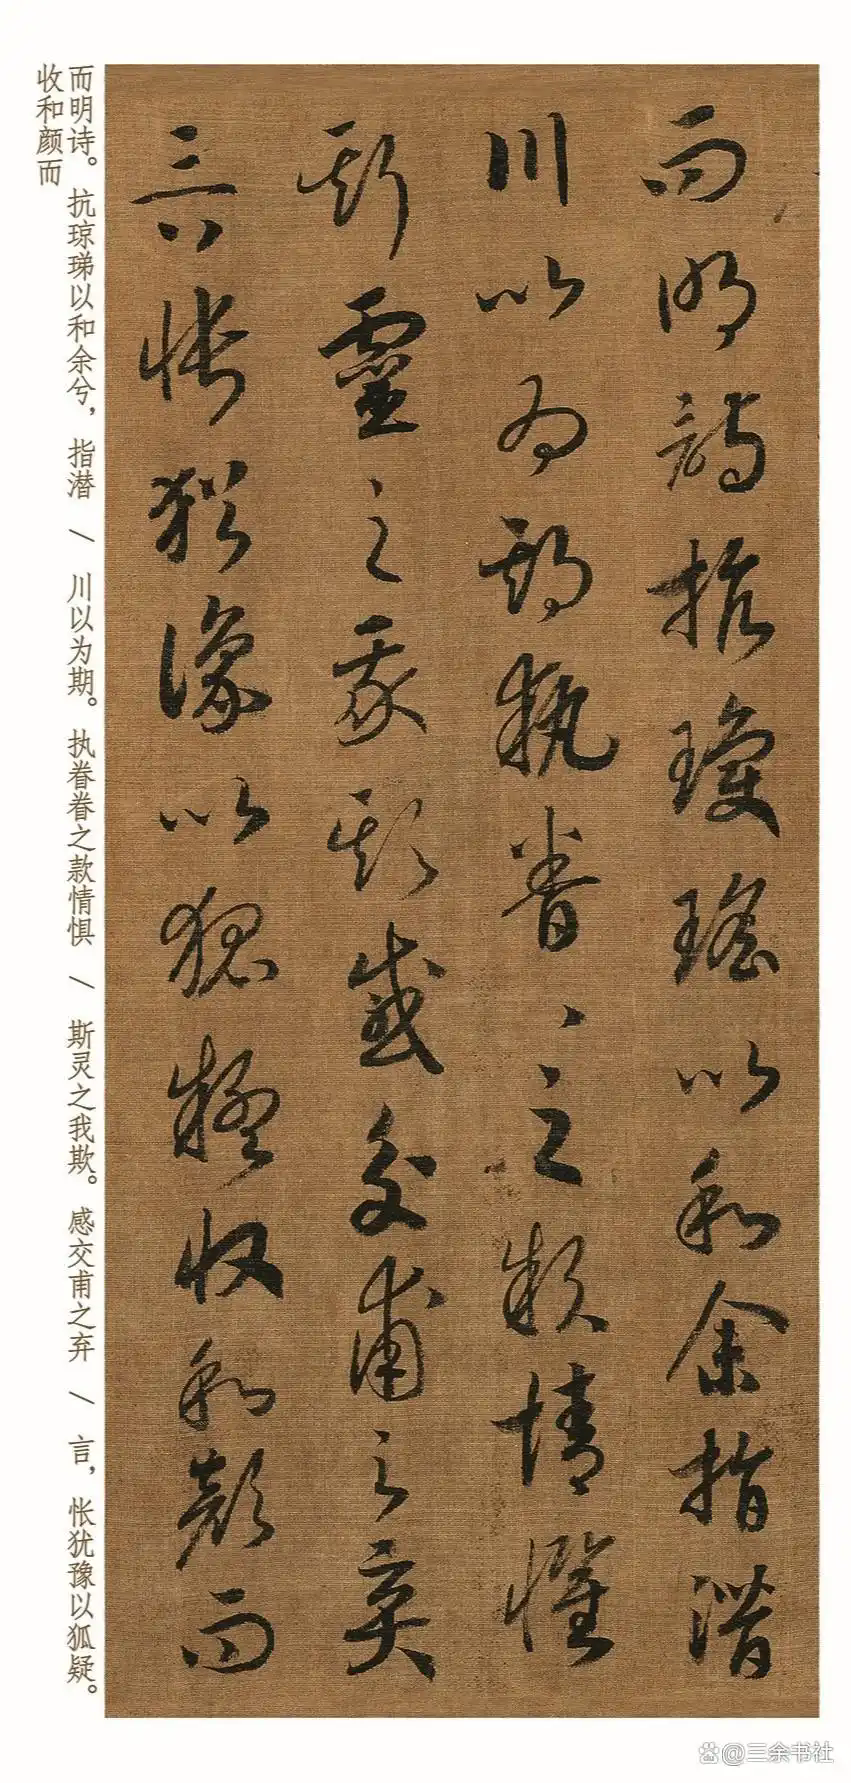 而明詩抗瓊瑤以和余指潛
川以為期執眷、之款情懼
斯靈之我欺感交甫之棄
言悵猶豫以狐疑收和顏而
而明诗。抗琼珶以和余兮，指潜 / 川以为期。执眷眷之款情惧 / 斯灵之我欺。感交甫之弃 / 言，怅犹豫以狐疑。
收和颜而
@三余书社